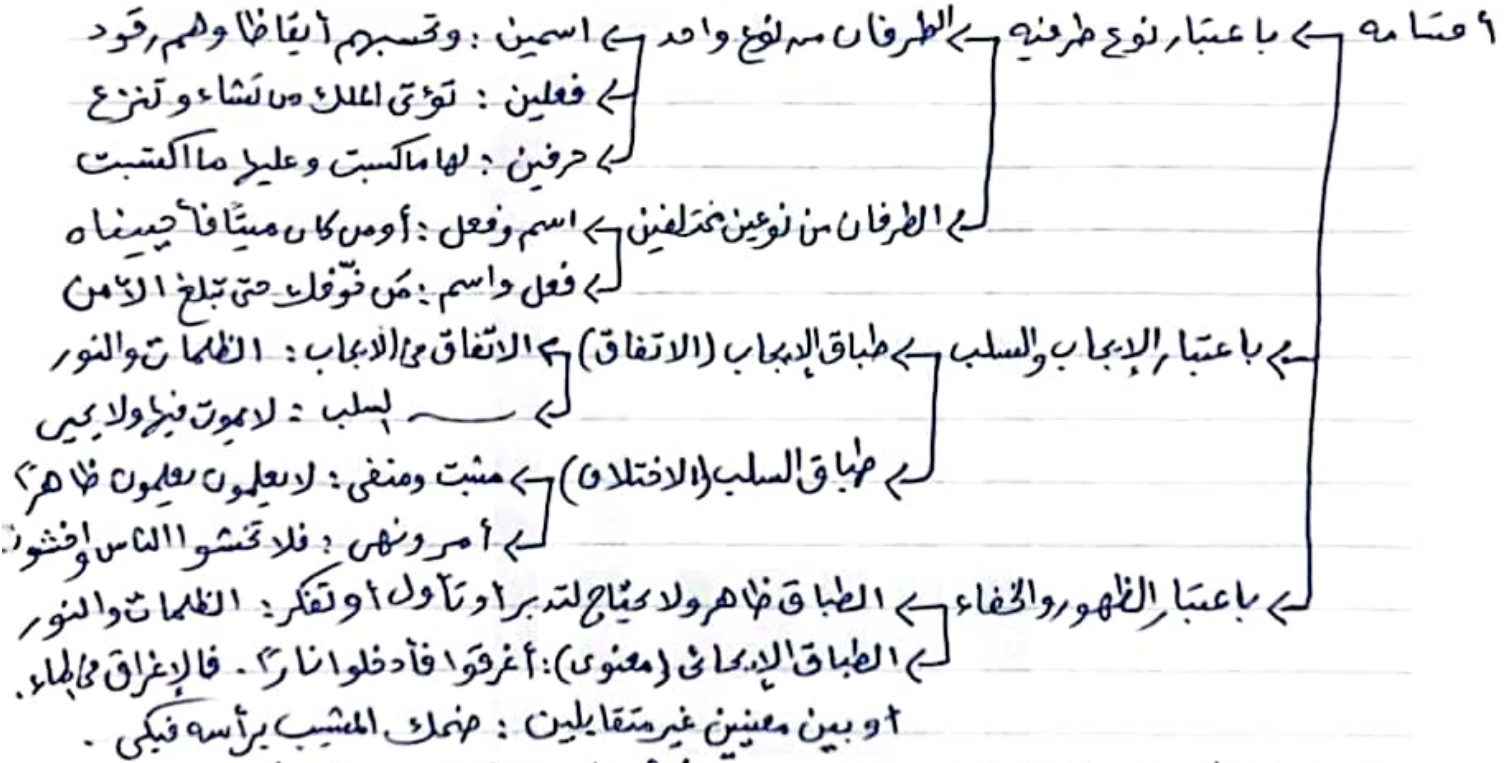 أقسامه ← باعتبار نوع طرفيه ← الطرفان من نوع واحد ← اسمين : وتحسبهم أيقاظا وهم رقود
← فعلين : تؤتى الملك من تشاء وتنزع
← حرفين : لها ما كسبت وعليها ما اكتسبت
← الطرفان من نوعين مختلفين ← اسم وفعل : أومن كان ميتًا فأحييناه
← فعل واسم : مَن خوّفك حتى تبلغ الأمن
← باعتبار الإيجاب والسلب ← طباق الإيجاب (الاتفاق) ← الاتفاق في الايجاب : الظلمات والنور
← السلب : لا يموت فيها ولا يحيى
← طباق السلب (الاختلاف) ← مثبت ومنفى : لا يعلمون يعلمون ظاهرًا
← أمر ونهى : فلا تخشوا الناس واخشون
← باعتبار الظهور والخفاء ← الطباق ظاهر ولا يحتاج لتدبر أو تأول أو تفكر : الظلمات والنور
← الطباق الإيحائى (معنوى) : أغرقوا فأدخلوا نارًا . فالإغراق في الماء .
أو بين معنيين غير متقابلين : ضحك المشيب برأسه فبكى .